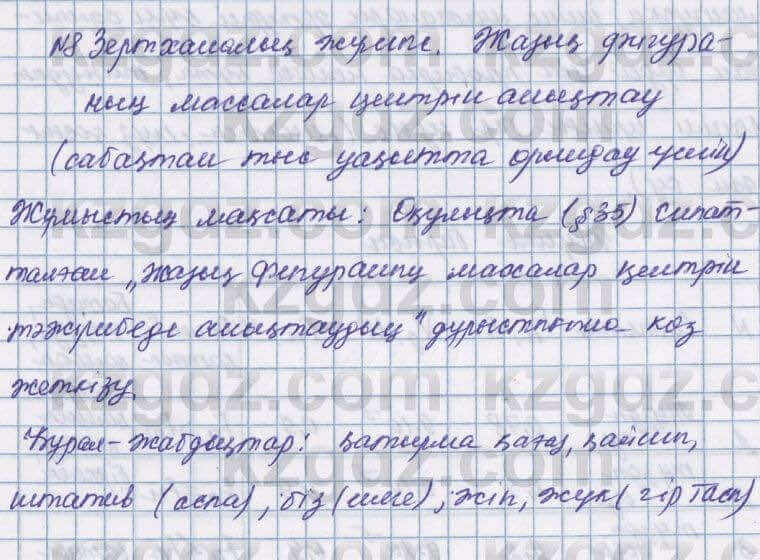 №8 Зертханалық жұмыс. Жазық фигура-
ның массалар центрін анықтау
(сабақтан тыс уақытта орындау үшін)
Жұмыстың мақсаты: Оқулықта (§35) сипат-
талған „Жазық фигураның массалар центрін
тәжірибеде анықтаудың" дұрыстығына көз
жеткізу.
Құрал-жабдықтар: қатырма қағаз, қайшы,
штатив (аспа), біз (ине), жіп, жүк (гір тасы)
kzgdz.com